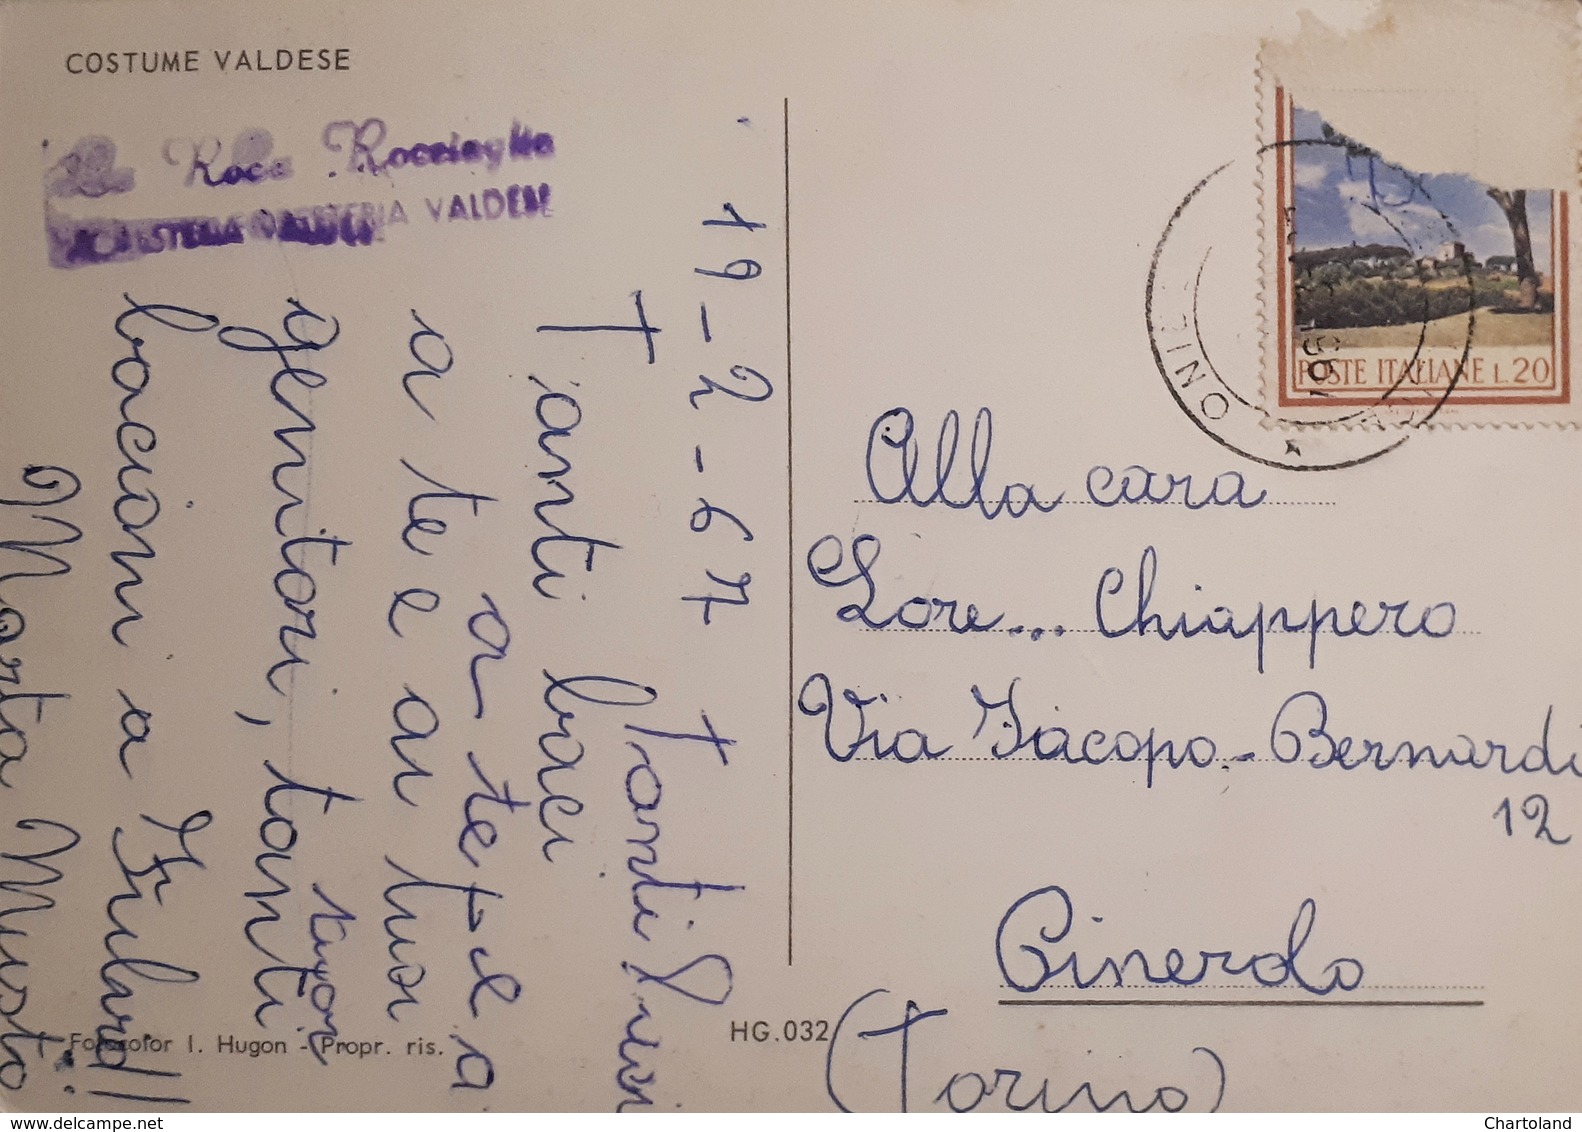 COSTUME VALDESE
VALDESE
19-2-67
Tanti baci
a te e ai tuoi
genitori, tanti
bacioni a
Marta Musto
Tanti
a te e a
tuoi
POSTE ITALIANE L.20
Alla cara
Lore... Chiappero
Via Jacopo-Bernardi
12
Pinerolo
(Torino)
Fotocolor I. Hugon - Propr. ris.
HG.032
www.delcampe.net
Chartoland